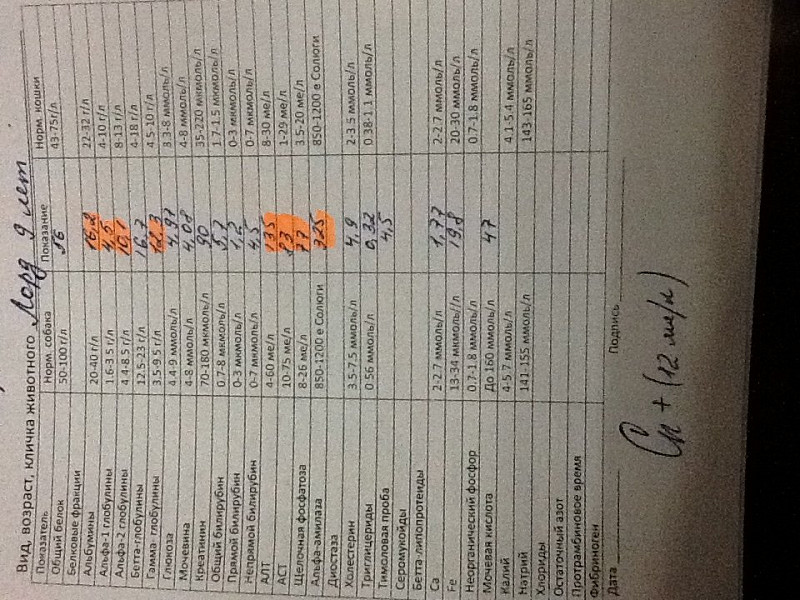 Вид, возраст, кличка животного Лорд 9 лет
Показатель Норм. собака Показание Норм. кошки
Общий белок 50-100 г/л 56 43-75г/л
Белковые фракции
Альбумины 20-40 г/л 16,2 22-32 г/л
Альфа-1 глобулины 1.6-3.5 г/л 4,5 4-10 г/л
Альфа-2 глобулины 4.4-8.5 г/л 10,1 8-13 г/л
Бетта-глобулины 12.5-23 г/л 16,7 4-18 г/л
Гамма- глобулины 3.5-9.5 г/л 12,3 4.5-10 г/л
Глюкоза 4.4-9 ммоль/л 4,97 3.3-8 ммоль/л
Мочевина 4-8 ммоль/л 4,08 4-8 ммоль/л
Креатинин 70-180 мкмоль/л 90 35-220 мкмоль/л
Общий билирубин 0.7-8 мкмоль/л 5,7 1.7-1.5 мкмоль/л
Прямой билирубин 0-3 мкмоль/л 1,2 0-3 мкмоль/л
Непрямой билирубин 0-7 мкмоль/л 4,5 0-7 мкмоль/л
АЛТ 4-60 ме/л 135 8-30 ме/л
АСТ 10-75 ме/л 1-29 ме/л
Щелочная фосфатоза 8-26 ме/л 77 3.5-20 ме/л
Альфа-амилаза 850-1200 е Солюги 325 850-1200 е Солюги
Диостаза
Холестерин 3.5-7.5 ммоль/л 4,9 2-3.5 ммоль/л
Триглицериды 0.56 ммоль/л 0,32 0.38-1.1 ммоль/л
Тимоловая проба 4,5
Серомукоиды
Бетта-липопротеиды
Са 2-2.7 ммоль/л 1,77 2-2.7 ммоль/л
Fe 13-34 мкмоль//л 19,8 20-30 ммоль/л
Неорганический фосфор 0.7-1.8 ммоль/л 0.7-1.8 ммоль/л
Мочевая кислота До 160 ммоль/л 47
Калий 4-5.7 ммоль/л 4.1-5.4 ммоль/л
Натрий 141-155 ммоль/л 143-165 ммоль/л
Хлориды
Остаточный азот
Протрамбиновое время
Фибриноген
Дата Подпись
+ (12 ме/л)